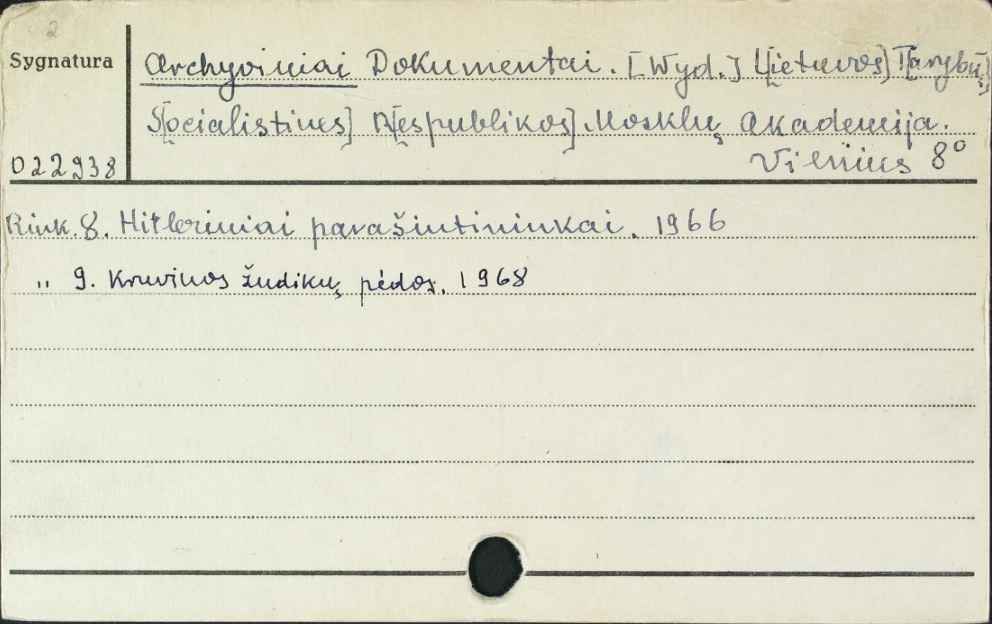 2
Sygnatura
Archyviniai Dokumentai. [Wyd.] L[ietuvos] T[arybų]
S[ocialistines] R[espublikos] Mosklų Akademija.
022938
Vilnius 8°
Rink. 8. Hitleriniai parašiutininkai. 1966
„ 9. Kruvinos žudikų pėdos. 1968